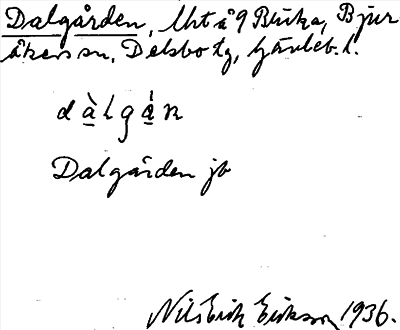 Dalgården, Utt å 9 Blicka, Bjur
åkers sn, Delsbo tg, Gävleb. l.
dàlgán
Dalgården jb
Nils Erik Eriksson 1936.